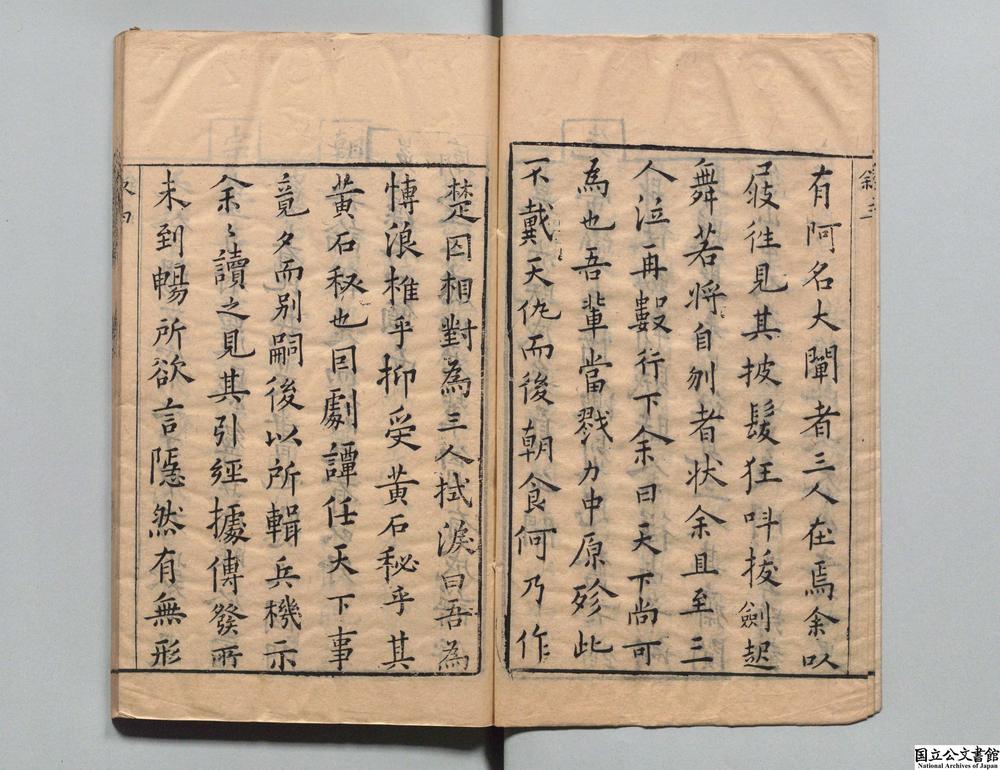 有阿名大闡者三人在焉余以
屐徃見其披髮狂呌拔劍起
舞若將自刎者狀余且至三
人泣再數行下余曰天下尚可
為也吾輩當戮力中原殄此
不戴天仇而後朝食何乃作
楚囚相對為三人拭淚曰吾為
慱浪椎乎抑受黃石秘乎其
黃石秘也因劇譚任天下事
竟夕而别嗣後以所輯兵機示
余余讀之見其引經據傳發所
未到暢所欲言隱然有無形
国立公文書館
National Archives of Japan